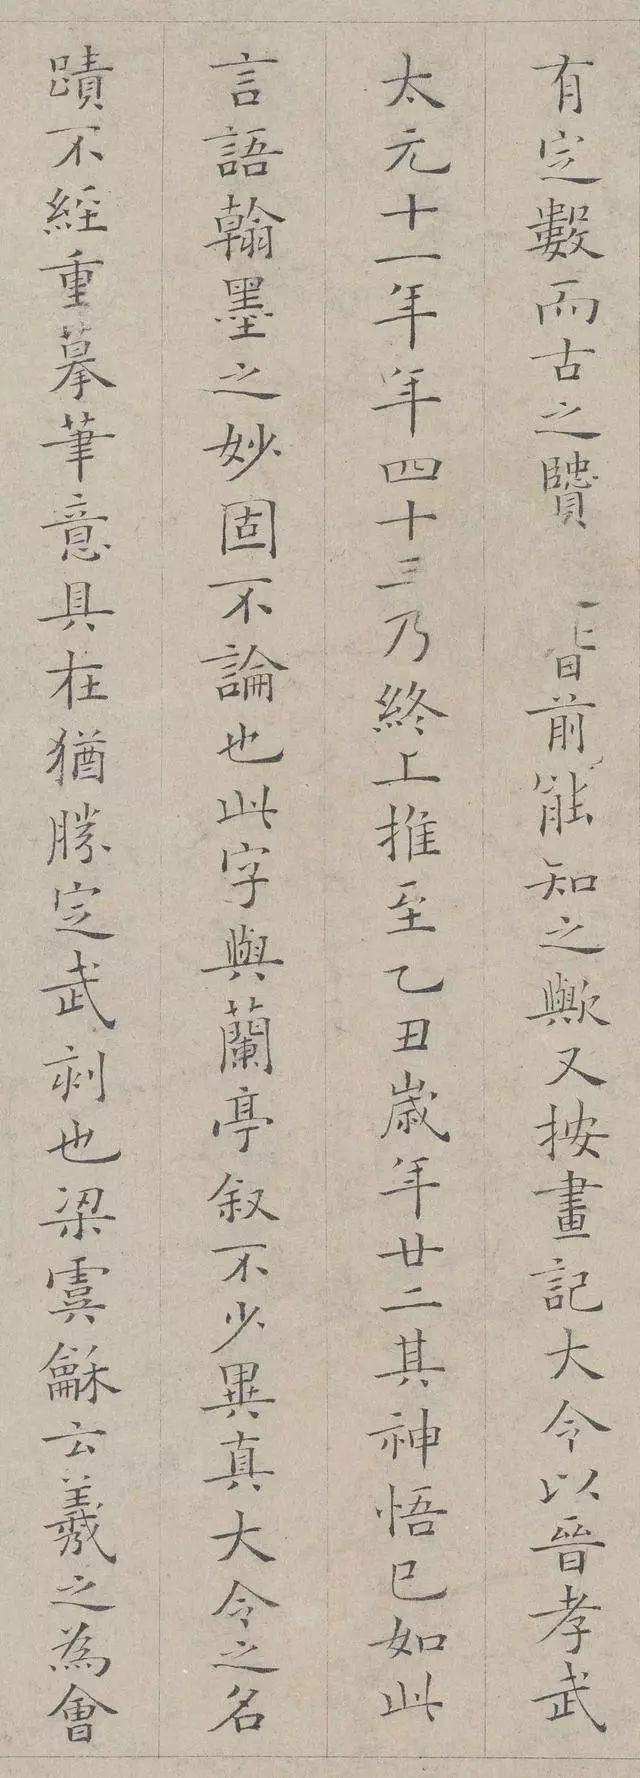 有定數而古之贒前能知之歟又按畫記大令以晉孝武
太元十一年年四十三乃終上推至乙丑歲年廿二其神悟已如此
言語翰墨之妙固不論也此字與蘭亭叙不少異真大令之名
蹟不經重摹筆意具在猶勝定武刻也梁虞龢云羲之為會